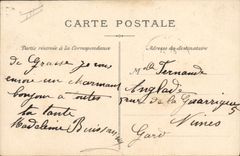 CARTE POSTALE
Partie réservée à la Correspondance
Adresse du destinataire
de Grasse je vous
envoie un charmant
bonjour à toutes
ta tante
Madeleine
Mlle Fernande
Anglade
rue de la Garrigue 5
Nimes
Gard